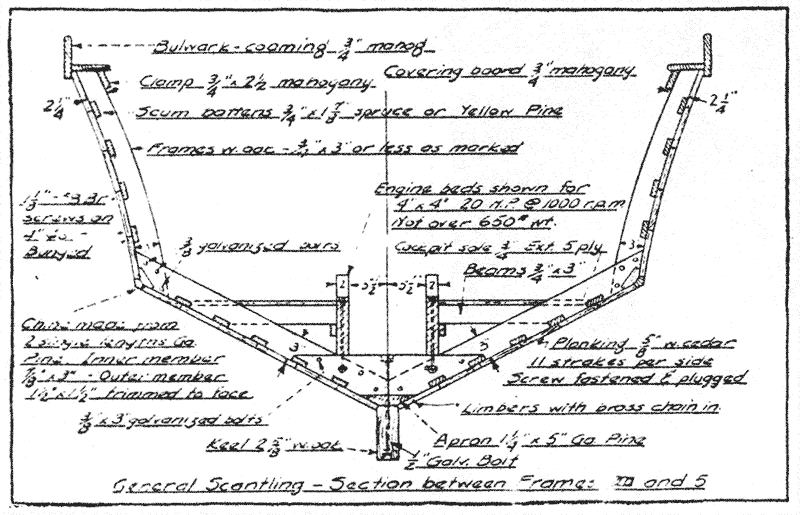 Bulwark - coaming 3/4" mahog.
Clamp 3/4" x 2 1/2 mahogany
Covering board 3/4" mahogany
2 1/4"
2 1/4"
Scum battens 3/4" x 1 7/8 spruce or Yellow Pine
Frames w. oak - 3/4" x 3" or less as marked
Engine beds shown for
4" x 4" 20 H.P. @ 1000 r.p.m
Not over 650# wt.
screws on
Bunged
3/8 galvanized bolts
Cockpit sole 3/4 Ext. 5 ply
Beams 3/4" x 3"
3
2
5 1/2"
5 1/2"
2
Chine made from
2 single lengths Ga
Pine - Inner member
7/8" x 3" - Outer member
1 1/2" x 1 1/2" trimmed to face
3"
Planking 5/8" w. cedar
11 strakes per side
Screw fastened & plugged
3/8" x 3" galvanized bolts
Limbers with brass chain in
Keel 2 5/8" w. oak
Apron 1 1/4" x 5" Ga. Pine
1/2" Galv. Bolt
General Scantling - Section between Frames and 5